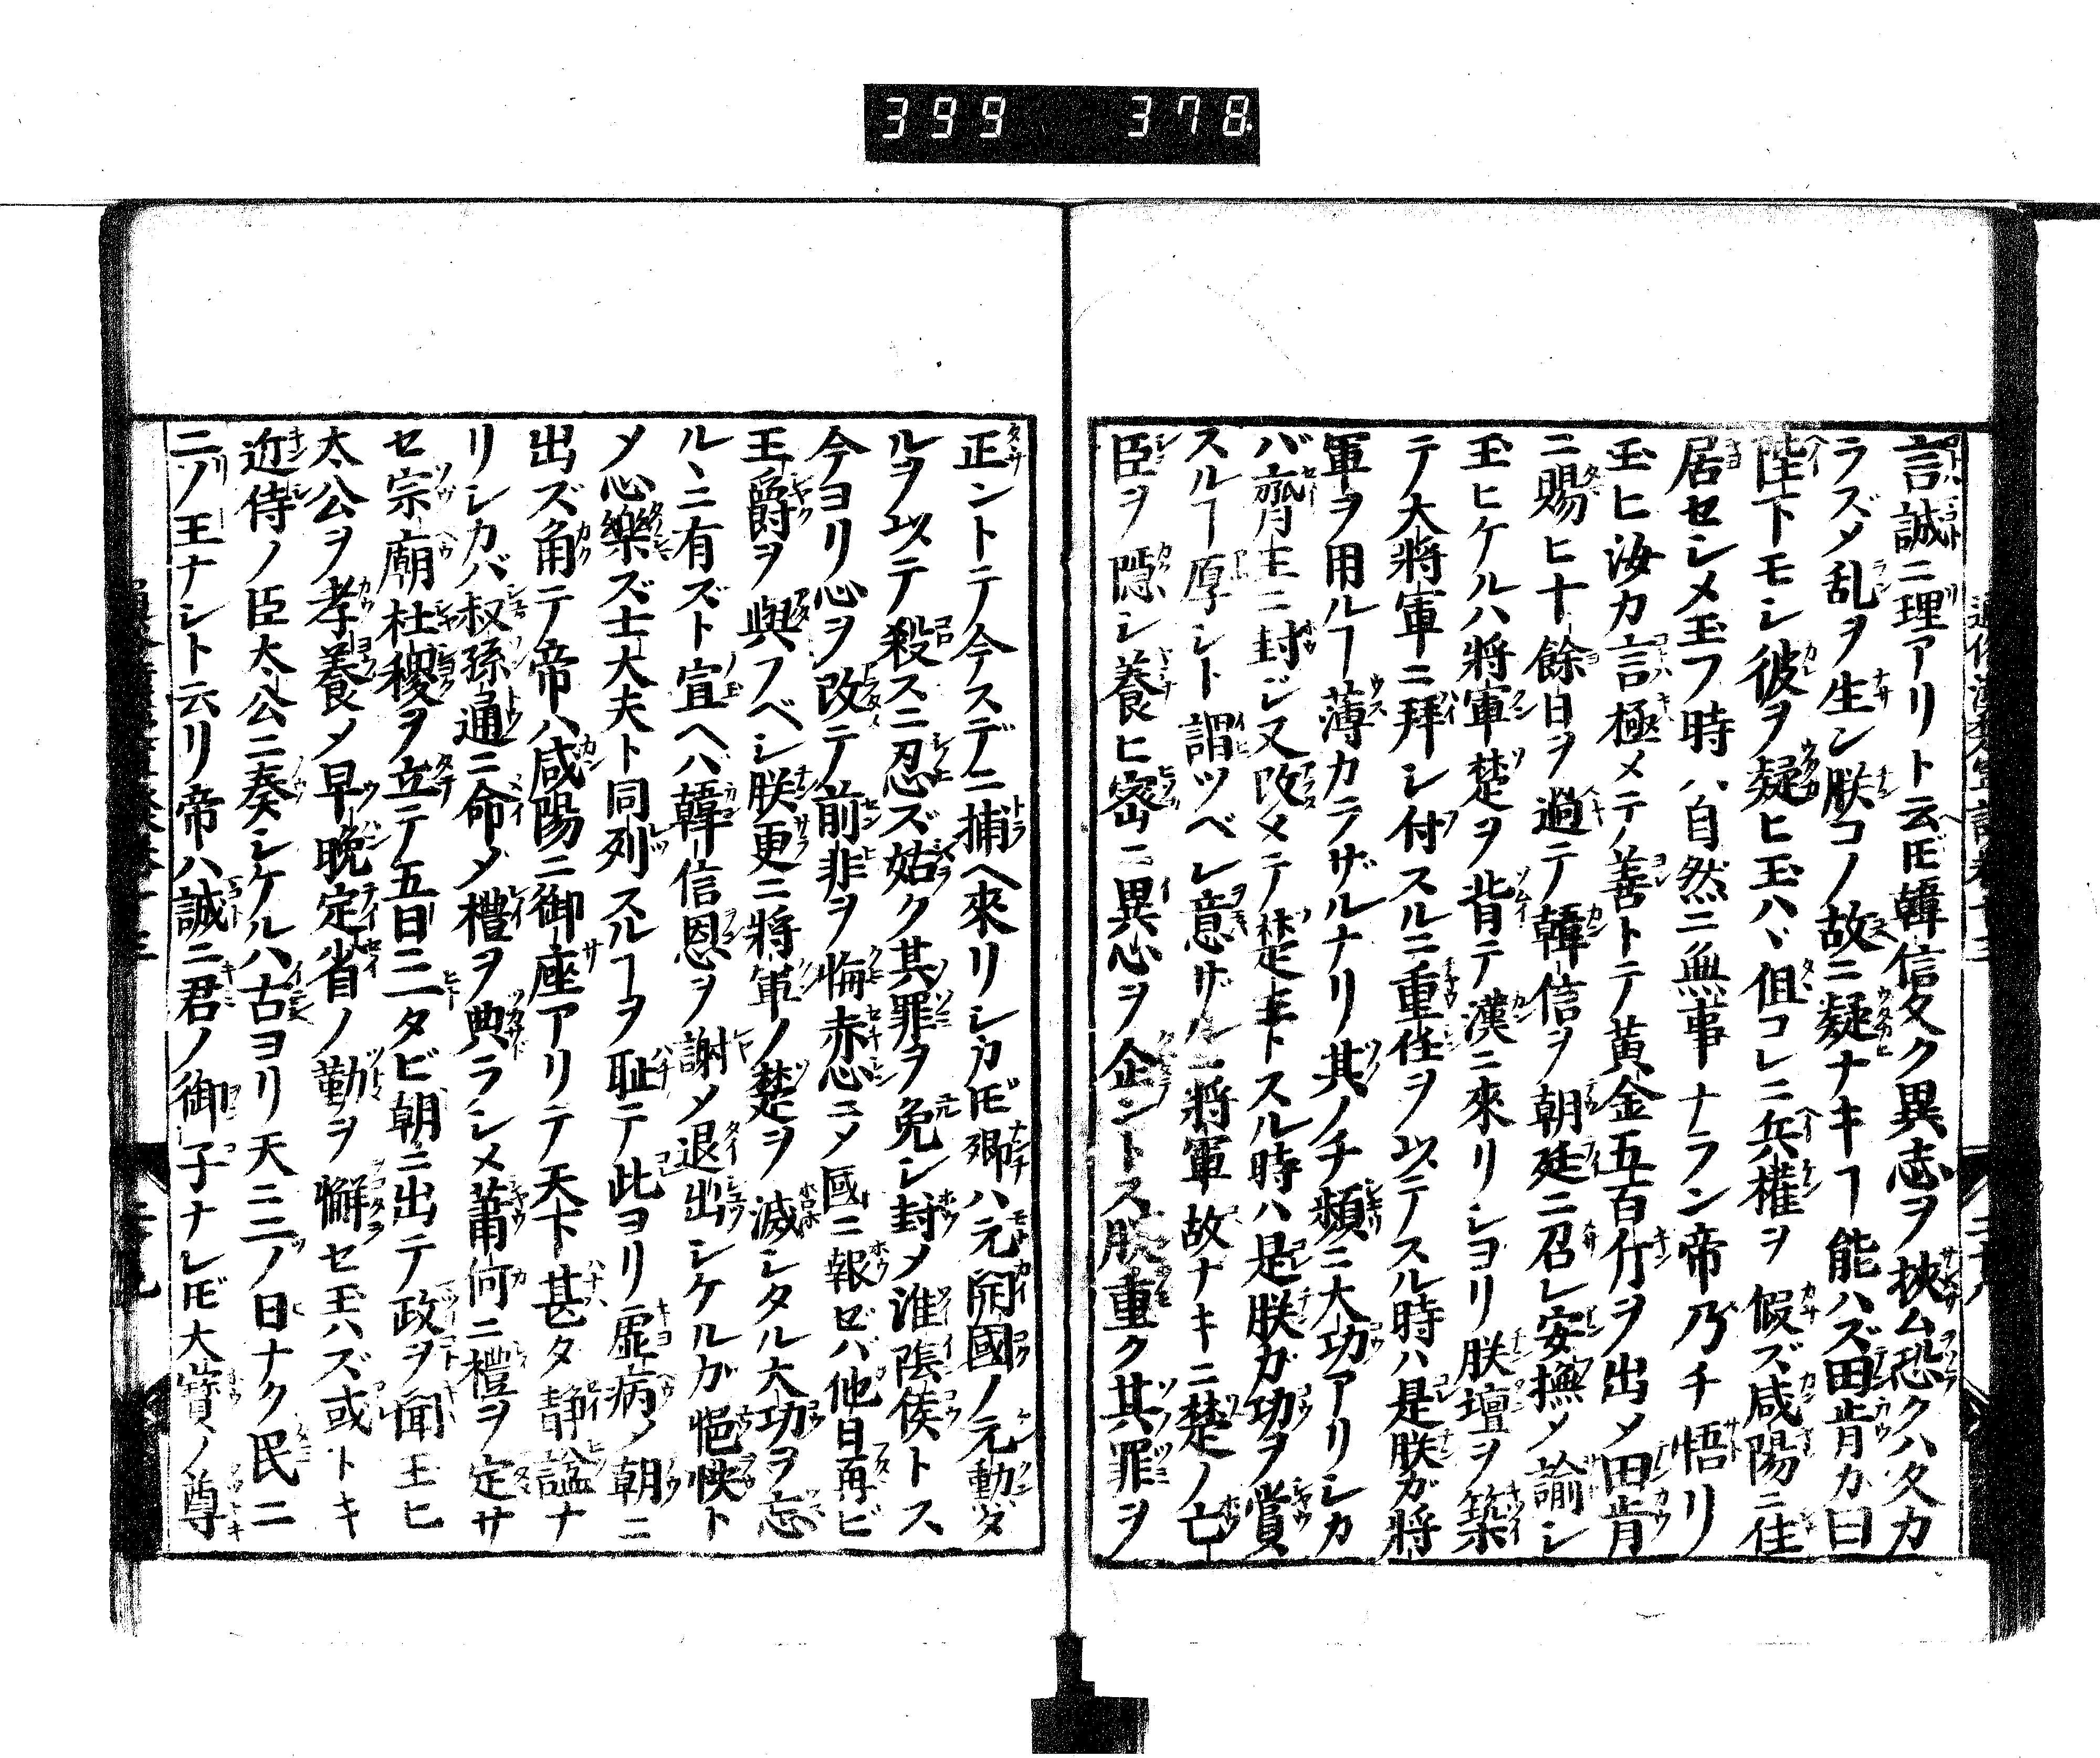 399 378
言誠ニ理アリト云𪜈韓信久ク異志ヲ挾ム恐クハ久カ
ラズ〆乱ヲ生ン朕コノ故ニ疑ナキヿ能ハズ田肯カ曰
陛下モシ彼ヲ疑ヒ玉ハヾ但コレニ兵權ヲ假ズ咸陽ニ住
居セシメ玉フ時ハ自然ニ無事ナラン帝乃チ悟リ
玉ヒ汝カ言極メテ善トテ黄金五百斤ヲ出〆田肯
ニ賜ヒ十餘日ヲ過テ韓信ヲ朝廷ニ召レ安撫〆諭シ
玉ヒケルハ將軍楚ヲ背テ漢ニ來リシヨリ朕壇ヲ築
テ大將軍ニ拜シ付スルニ重任ヲ以テスル時ハ是朕ガ將
軍ヲ用ルヿ薄カラザルナリ其ノチ頻ニ大功アリシカ
バ齊王ニ封ジ又改メテ楚王トスル時ハ是朕ガ功ヲ賞
スルヿ厚シト謂ツベレ意ザルニ將軍故ナキニ楚ノ亡
臣ヲ隱シ養ヒ密ニ異心ヲ企ントス朕重ク其罪ヲ
正ントテ今スデニ捕ヘ來リシカ𪜈卿ハ元開國ノ元勲ダ
ルヲ以テ殺スニ忍ズ姑ク其罪ヲ免シ封〆淮陰侯トス
今ヨリ心ヲ改テ前非ヲ悔赤心ニ〆國ニ報ゼバ他日再ビ
王爵ヲ與フベシ朕更ニ將軍ノ楚ヲ滅シタル大功ヲ忘
ルヽニ有ズト宣ヘハ韓信恩ヲ謝〆退出シケルガ悒怏ト
〆心樂ズ士大夫ト同列スルヿヲ耻テ此ヨリ虚病〆朝ニ
出ズ角テ帝ハ咸陽ニ御座アリテ天下甚タ静謐ナ
リシカバ叔孫通ニ命〆禮ヲ典ラシメ蕭何ニ禮ヲ定サ
セ宗廟社稷ヲ立テ五日ニ一タビ朝ニ出テ政ヲ聞玉ヒ
太公ヲ孝養〆早晩定省ノ勤ヲ懈セ玉ハズ或トキ
近侍ノ臣太公ニ奏シケルハ古ヨリ天ニ二ノ日ナク民ニ
二ノ王ナシト云リ帝ハ誠ニ君ノ御子ナレ𪜈大寶ノ尊